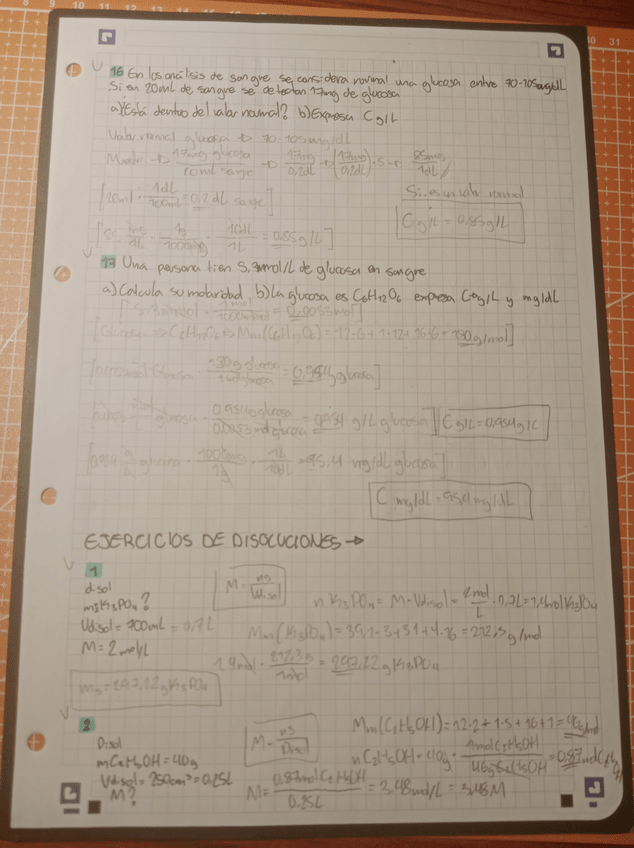 8 9 10 11 12 13 14 15 16 17 18 30 31
16 En los análisis de sangre se considera normal una glucosa entre 70-105mg/dL
Si en 20mL de sangre se detectan 17mg de glucosa
a)¿Está dentro del valor normal? b)Expresa Cg/L
Valor normal glucosa → 70-105mg/dL
Muestra → 17mg glucosa / 20mL sangre → 17mg / 0,2dL → (17mg / 0,2dL) · 5 → 85mg / 1dL
[20mL · 1dL / 100mL = 0,2 dL sangre]
Si, es un valor normal
Cg/L = 0,85g/L
[85 mg / dL · 1g / 1000mg · 10dL / 1L = 0,85g/L]
17 Una persona tien 5,3mmol/L de glucosa en sangre
a)Calcula su molaridad b)La glucosa es C6H12O6 expresa Cg/L y mg/dL
[5,3mmol · 1mol / 1000mmol = 0,0053mol]
[Glucosa → C6H12O6 → Mm(C6H12O6) = 12·6+1·12+16·6 = 180g/mol]
glucosa · 180g glucosa / 1mol glucosa = glucosa]
glucosa · glucosa / 0,0053mol glucosa = 0,954 g/L glucosa]
Cg/L = 0,954g/L
[0,954 g / L glucosa · 1000mg / 1g · 1L / 10dL = 95,4 mg/dL glucosa]
C mg/dL = 95,4mg/dL
EJERCICIOS DE DISOLUCIONES →
1
disol
msK3PO4?
Vdisol = 700mL = 0,7L
M = 2mol/L
M = ns / Vdisol
n K3PO4 = M·Vdisol = 2mol / L · 0,7L = 1,4mol K3PO4
Mm(K3PO4) = 39,1·3+31+4·16 = 212,3g/mol
1,4mol · 212,3g / 1mol = 297,22g K3PO4
ms = 297,22g K3PO4
2
Disol
mC2H5OH = 40g
Vdisol = 250cm³ = 0,25L
M?
M = ns / Disol
Mm(C2H5OH) = 12·2+1·5+16+1 = 46g/mol
nC2H5OH = 40g · 1molC2H5OH / 46gC2H5OH = 0,87molC2H5OH
M = 0,87mol C2H5OH / 0,25L = 3,48mol/L = 3,48M